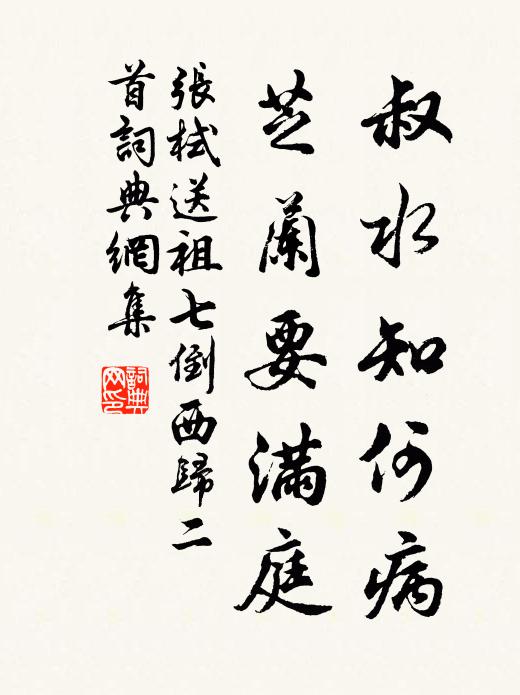 叔水知何病
芝蘭要滿庭
張栻送祖七倒西歸二
首詞典網集
詞典網印